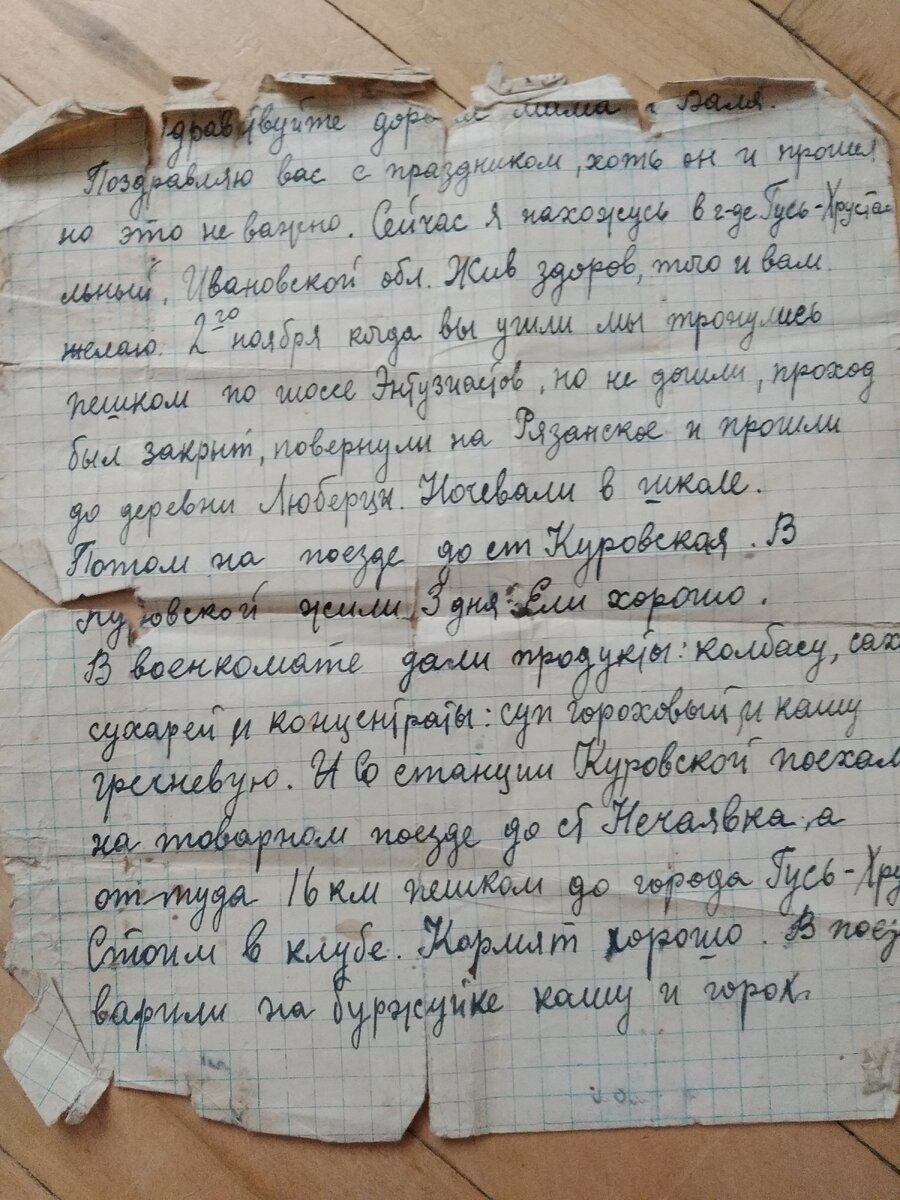 Здравствуйте дорогая мама и Валя.
Поздравляю вас с праздником, хоть он и прошел
но это не важно. Сейчас я нахожусь в г-де Гусь-Хруста
льный, Ивановской обл. Жив здоров, того и вам
желаю. 2го ноября когда вы ушли мы тронулись
пешком по шоссе Энтузиастов, но не дошли, проход
был закрыт, повернули на Рязанское и прошли
до деревни Люберцы. Ночевали в школе.
Потом на поезде до ст Куровская. В
Куровской жили 3 дня. Ели хорошо.
В военкомате дали продукты: колбасу, сах
сухарей и концентраты: суп гороховый и кашу
гречневую. И со станции Куровской поехал
на товарном поезде до ст Нечаявка, а
оттуда 16 км пешком до города Гусь-Хру
Стоим в клубе. Кормят хорошо. В поез
варили на буржуйке кашу и горох.